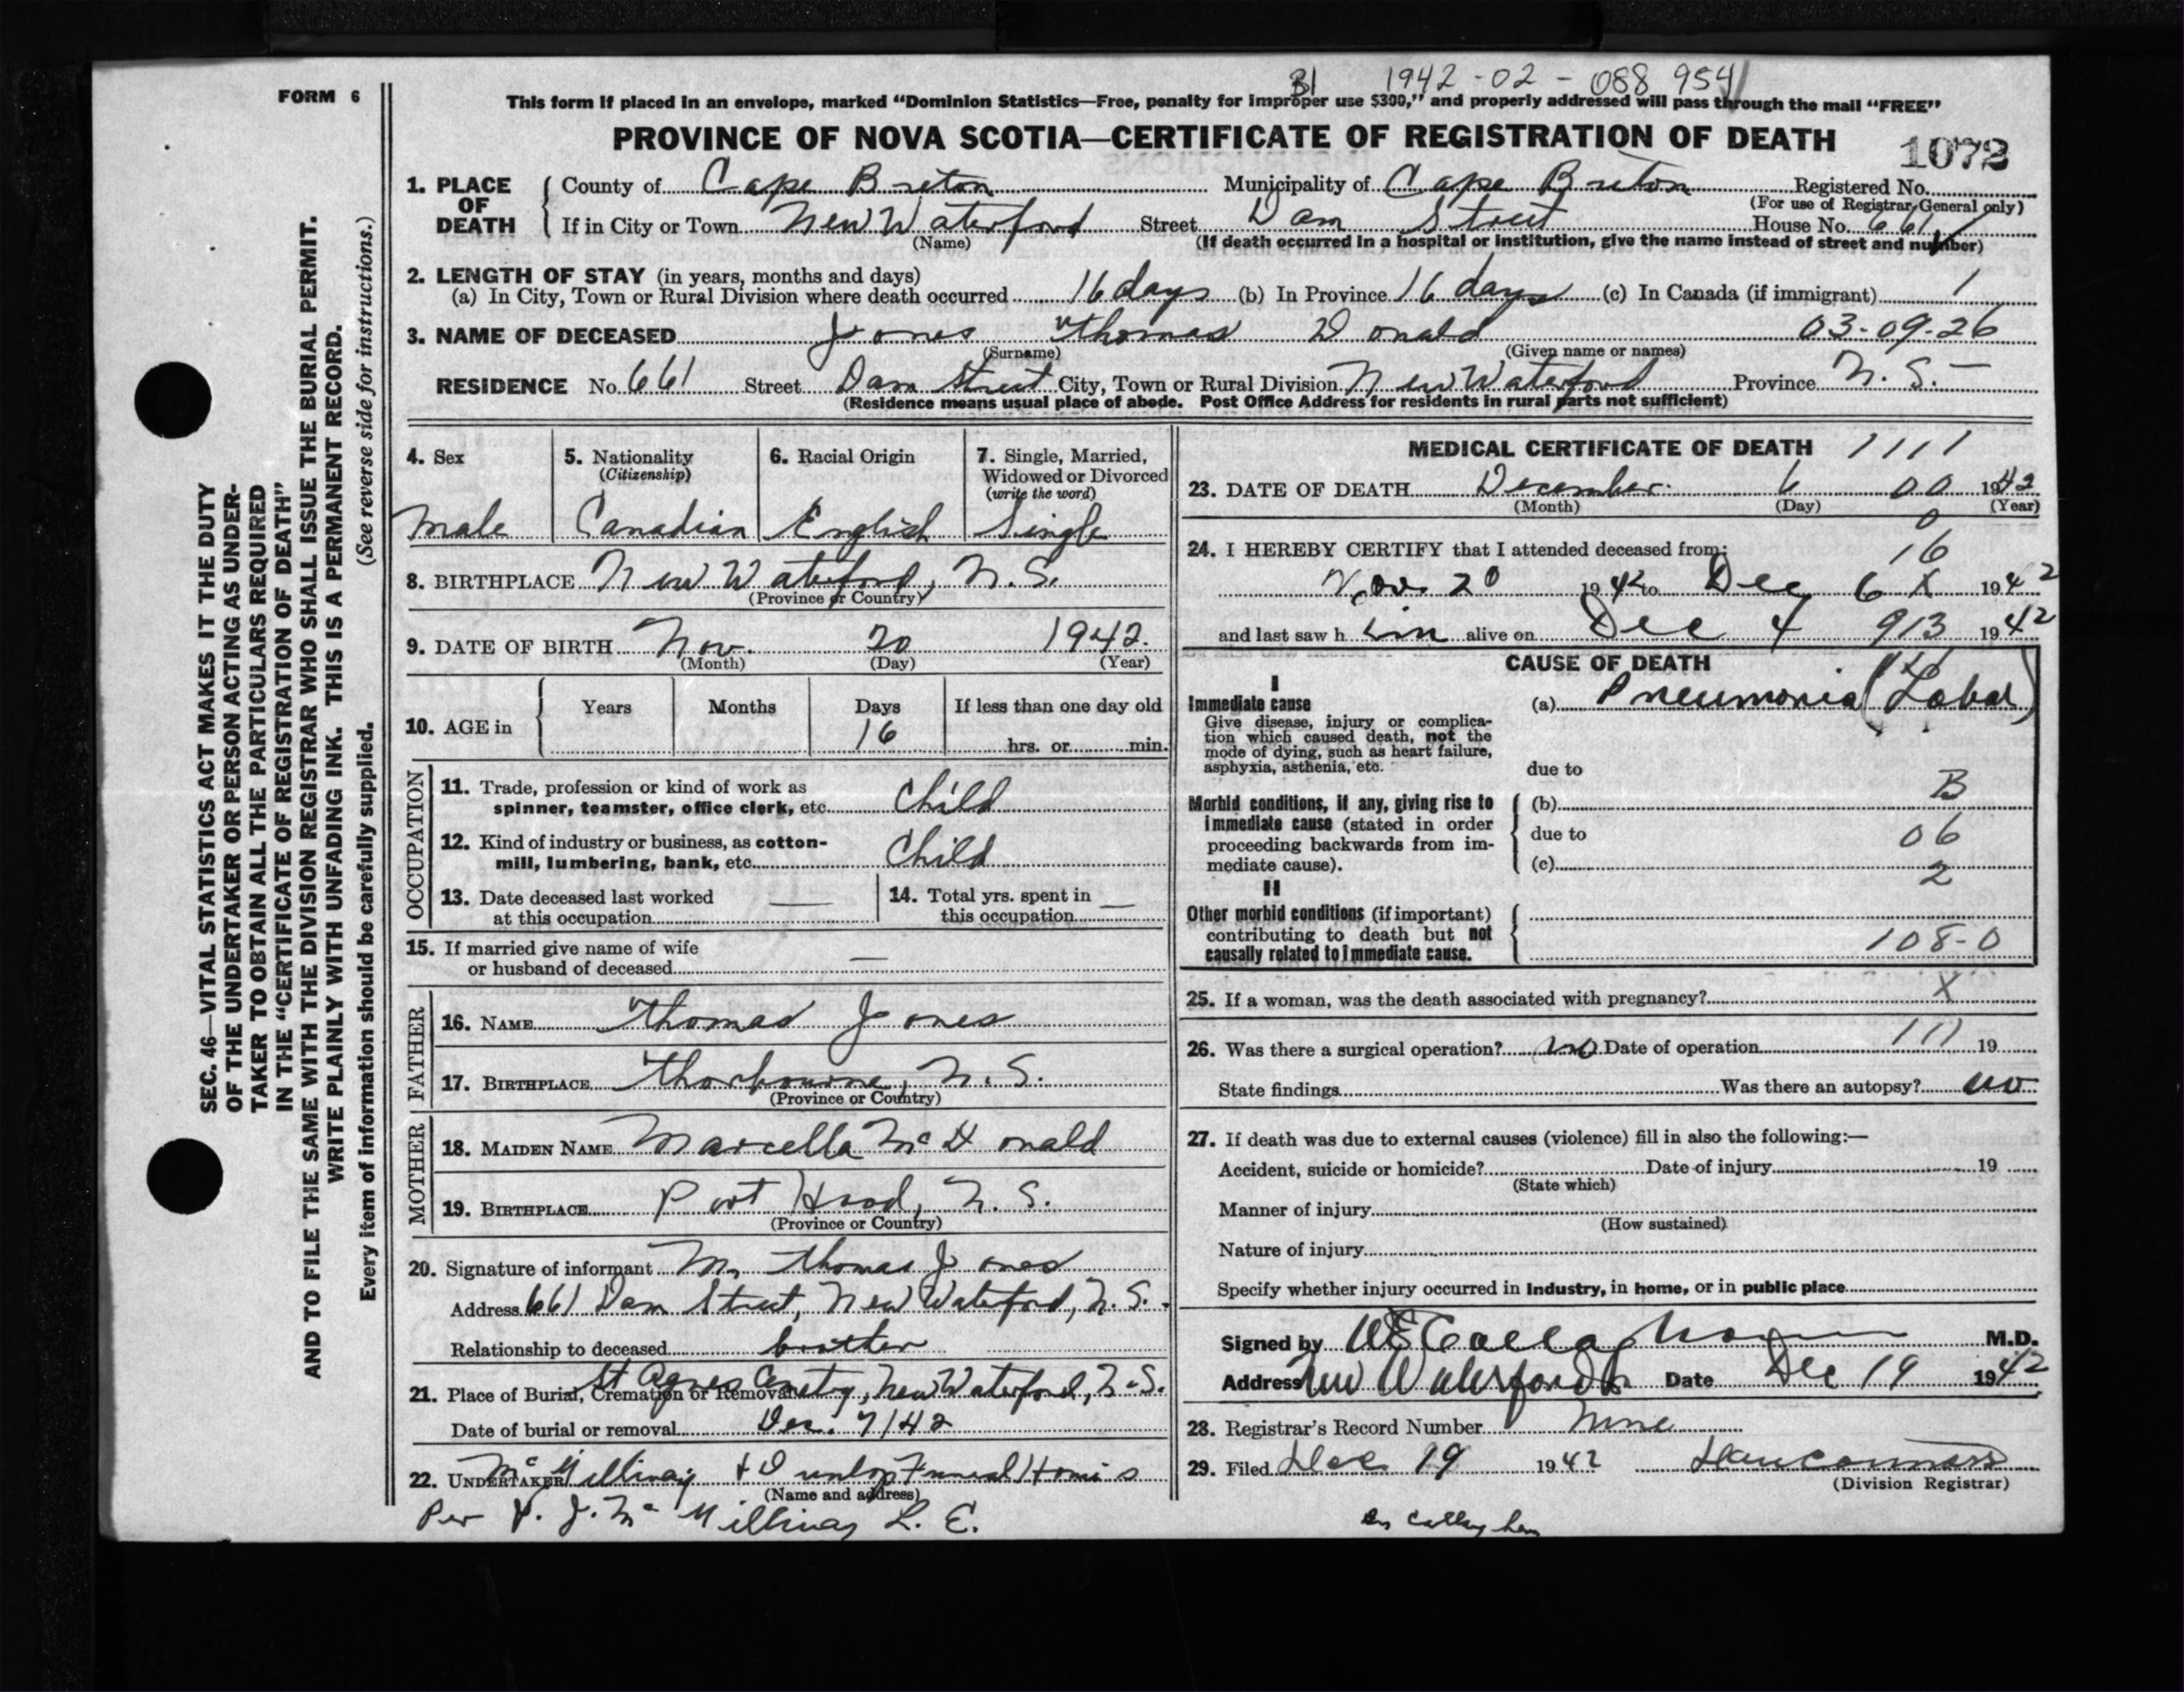 31 1942-02-088954
FORM 6
This form if placed in an envelope, marked "Dominion Statistics—Free, penalty for improper use $300," and properly addressed will pass through the mail "FREE"
PROVINCE OF NOVA SCOTIA—CERTIFICATE OF REGISTRATION OF DEATH
1072
1. PLACE OF DEATH
County of Cape Breton Municipality of Cape Breton Registered No.
(For use of Registrar General only)
If in City or Town New Waterford Street Dam Street House No. 661
(Name) (If death occurred in a hospital or institution, give the name instead of street and number)
2. LENGTH OF STAY (in years, months and days)
(a) In City, Town or Rural Division where death occurred 16 days (b) In Province 16 days (c) In Canada (if immigrant) 1
3. NAME OF DECEASED Jones Thomas Donald 03-09-26
(Surname) (Given name or names)
RESIDENCE No. 661 Street Dam Street City, Town or Rural Division New Waterford Province N. S.
(Residence means usual place of abode. Post Office Address for residents in rural parts not sufficient)
SEC. 46—VITAL STATISTICS ACT MAKES IT THE DUTY
OF THE UNDERTAKER OR PERSON ACTING AS UNDER-
TAKER TO OBTAIN ALL THE PARTICULARS REQUIRED
IN THE "CERTIFICATE OF REGISTRATION OF DEATH"
AND TO FILE THE SAME WITH THE DIVISION REGISTRAR WHO SHALL ISSUE THE BURIAL PERMIT.
WRITE PLAINLY WITH UNFADING INK. THIS IS A PERMANENT RECORD.
Every item of information should be carefully supplied. (See reverse side for instructions.)
4. Sex
Male
5. Nationality
(Citizenship)
Canadian
6. Racial Origin
English
7. Single, Married,
Widowed or Divorced
(write the word)
Single
8. BIRTHPLACE New Waterford, N. S.
(Province or Country)
9. DATE OF BIRTH Nov. 20 1942.
(Month) (Day) (Year)
10. AGE in
Years Months Days If less than one day old
16 hrs. or min.
OCCUPATION
11. Trade, profession or kind of work as
spinner, teamster, office clerk, etc. Child
12. Kind of industry or business, as cotton-
mill, lumbering, bank, etc. Child
13. Date deceased last worked
at this occupation —
14. Total yrs. spent in
this occupation —
15. If married give name of wife
or husband of deceased —
FATHER
16. NAME Thomas Jones
17. BIRTHPLACE Thorbourne, N. S.
(Province or Country)
MOTHER
18. MAIDEN NAME Marcella McDonald
19. BIRTHPLACE Port Hood, N. S.
(Province or Country)
20. Signature of informant Thomas Jones
Address 661 Dam Street, New Waterford, N. S.
Relationship to deceased brother
21. Place of Burial, Cremation or Removal St Agnes Cemetry, New Waterford, N. S.
Date of burial or removal Dec. 7/42
22. UNDERTAKER McGillivray & Dunlop Funeral Homes
(Name and address)
Per J. McGillivray L. E.
MEDICAL CERTIFICATE OF DEATH 1111
23. DATE OF DEATH December 6 00 1942
(Month) (Day) (Year)
0
24. I HEREBY CERTIFY that I attended deceased from: 16
Nov 20 1942 to Dec 6 X 1942
and last saw him alive on Dec 4 913 1942
CAUSE OF DEATH
I
Immediate cause
Give disease, injury or complica-
tion which caused death, not the
mode of dying, such as heart failure,
asphyxia, asthenia, etc.
(a) Pneumonia (Lobar)
due to
Morbid conditions, if any, giving rise to
immediate cause (stated in order
proceeding backwards from im-
mediate cause).
(b) B
due to 06
(c) 2
II
Other morbid conditions (if important)
contributing to death but not
causally related to immediate cause.
108-0
25. If a woman, was the death associated with pregnancy? X
26. Was there a surgical operation? no Date of operation 111 19
State findings Was there an autopsy? no
27. If death was due to external causes (violence) fill in also the following:—
Accident, suicide or homicide? Date of injury 19
(State which)
Manner of injury
(How sustained)
Nature of injury
Specify whether injury occurred in Industry, in home, or in public place
Signed by Callaghan M.D.
Address New Waterford Date Dec 19 1942
28. Registrar's Record Number
29. Filed Dec 19 1942
(Division Registrar)
Dr Callaghan